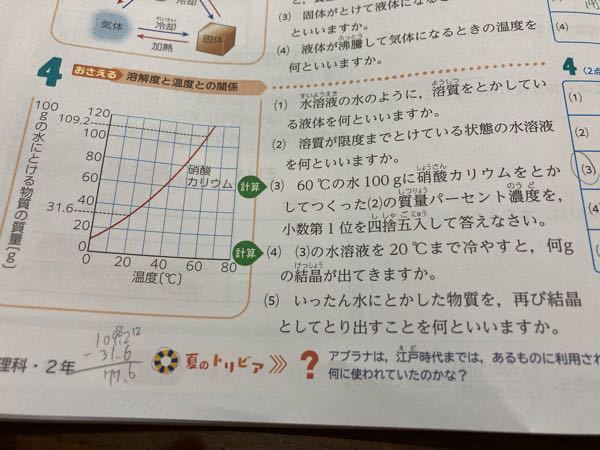 冷却
れいきゃく
気体
固体
加熱
(3) 固体がとけて液体になる
といいますか。
(4) 液体が沸騰して気体になるときの温度を
ふっとう
何といいますか。
4 おさえる 溶解度と温度との関係
100gの水にとける物質の質量〔g〕
120
109.2
100
80
60
40
31.6
20
0
硝酸
カリウム
0 20 40 60 80
温度〔℃〕
すいようえき ようしつ
(1) 水溶液の水のように，溶質をとかしてい
る液体を何といいますか。
(2) 溶質が限度までとけている状態の水溶液
を何といいますか。
しょうさん
計算 (3) 60℃の水100gに硝酸カリウムをとか
しつりょう のうど
してつくった(2)の質量パーセント濃度を，
ししゃごにゅう
小数第1位を四捨五入して答えなさい。
計算 (4) (3)の水溶液を20℃まで冷やすと，何g
けっしょう
の結晶が出てきますか。
(5) いったん水にとかした物質を，再び結晶
としてとり出すことを何といいますか。
4 〈2点
(1)
(2)
(3)
(4)
理科・2年
109.2
-31.6
77.6
夏のトリビア
?
えど
アブラナは，江戸時代までは，あるものに利用され
何に使われていたのかな？